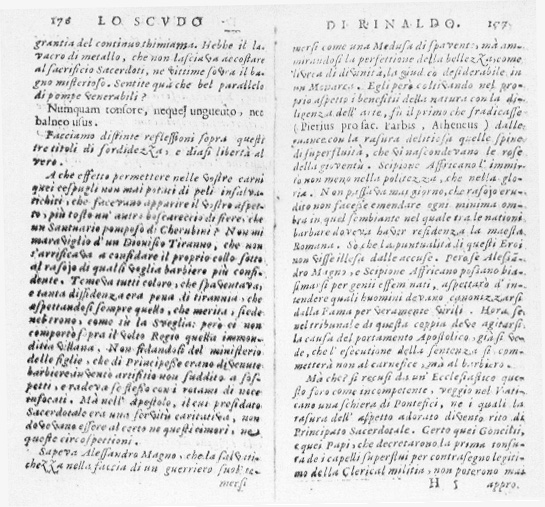 176 LO SCVDO
grantia del continuo thimiama. Hebbe il la-
vacro di metallo, che non lasciava accostare
al sacrificio Sacerdoti, ne vittime sovra il ba-
gno misterioso. Sentite quà che bel parallelo
di pompe venerabili?
Numquam tonsore, neque unguento, nec
balneo usus.
Facciamo distinte reflessioni sopra questi
tre titoli di sordidezza, e diasi libertà al
vero.
A che effetto permettere nelle vostre carni
quei cespugli non mai potaci di peli insalva-
tichiti, che facevano apparire il vostro aspet-
to, più tosto un' autro boscareccio di fiere, che
un Santuario pomposo di Cherubini? Non mi
maraviglio d'un Dionisio Tiranno, che non
s'arrificava a consfidare il proprio collo sotto
al rasojo di qualsi voglia barbiero più consi-
dente. Temeva tutti coloro, che spaventava,
e tanta diffidenza era pena di tirannia, che
aspettandosi sempre quello, che merita, siede
nel trono, come sù la sveglia: però ei non
comportò spra il volto Regio questa immon-
ditia villana. Non fidandosi del ministerio
delle figlie, che di Principesse erano divenute
barbiere invento artificio non suddito a sos-
petti, e radeva se stesso con i rotami di noce
infocati. Mà nell' Apostolo, il cui presidato
Sacerdotale era una servitù caritativa, non
dovevano essere al certo ne questi timori, ne
queste circospettioni.
Sapeva Alessandro Magno, che la salvati-
chezza nella faccia di un guerriero suol te-
mersi
DI RINALDO. 157
mersi come una Medusa di spavento; mà am-
mirandosi la perfettione della bellezza come
livrea di divinità, la giudicò desiderabile in
un Monarca. Egli però coltivando nel pro-
prio aspetto i benefitii della natura con la di-
ligenza dell' arte, fù il primo che sradicasse
(Pierius pro sac. barbis, Atheneus) dalle
guance con la rasura delitiosa quelle spine
di superfluità, che vi nascondevano le rose
della gioventù. Scipione Affricano l'immi-
tò non meno nella politezza, che nella glo-
ria. Non passava mai giorno, che rasojo eru-
dito non facesse emendare ogni minima om-
bra in quel sembiante nel quale tra le nationi
barbare doveva haver residenza la maestà
Romana. Sò, che la puntualità di questi Eroi
non visse illesa dalle accuse. Però se Alessan-
dro Magno, e Scipione Affricano possano bia-
simarsi per genii effeminati, aspettarò d'in-
tendere quali huomini devano canonizzarsi
dalla Fama per veramente virili. Hora se
nel tribunale di questa coppia deve agitarsi
la causa del portamento Apostolico, già si ve-
de, che l'esecutione della sentenza si com-
metterà non al carnefice, mà al barbiero.
Mà che? si recusi da un' Ecclesiastico que-
sto foro come incompetente, veggio nel Vati-
cano una schiera di Pontefici, ne i quali la
rasura dell' aspetto adorato divento rito di
Principato Sacerdotale. Certo quei Concilii,
e quei Papi, che decretarono la prima tonsu-
ra de i capelli superflui per contrasegno legiti-
mo della Clerical militia, non poterono mai
H 5 appro.